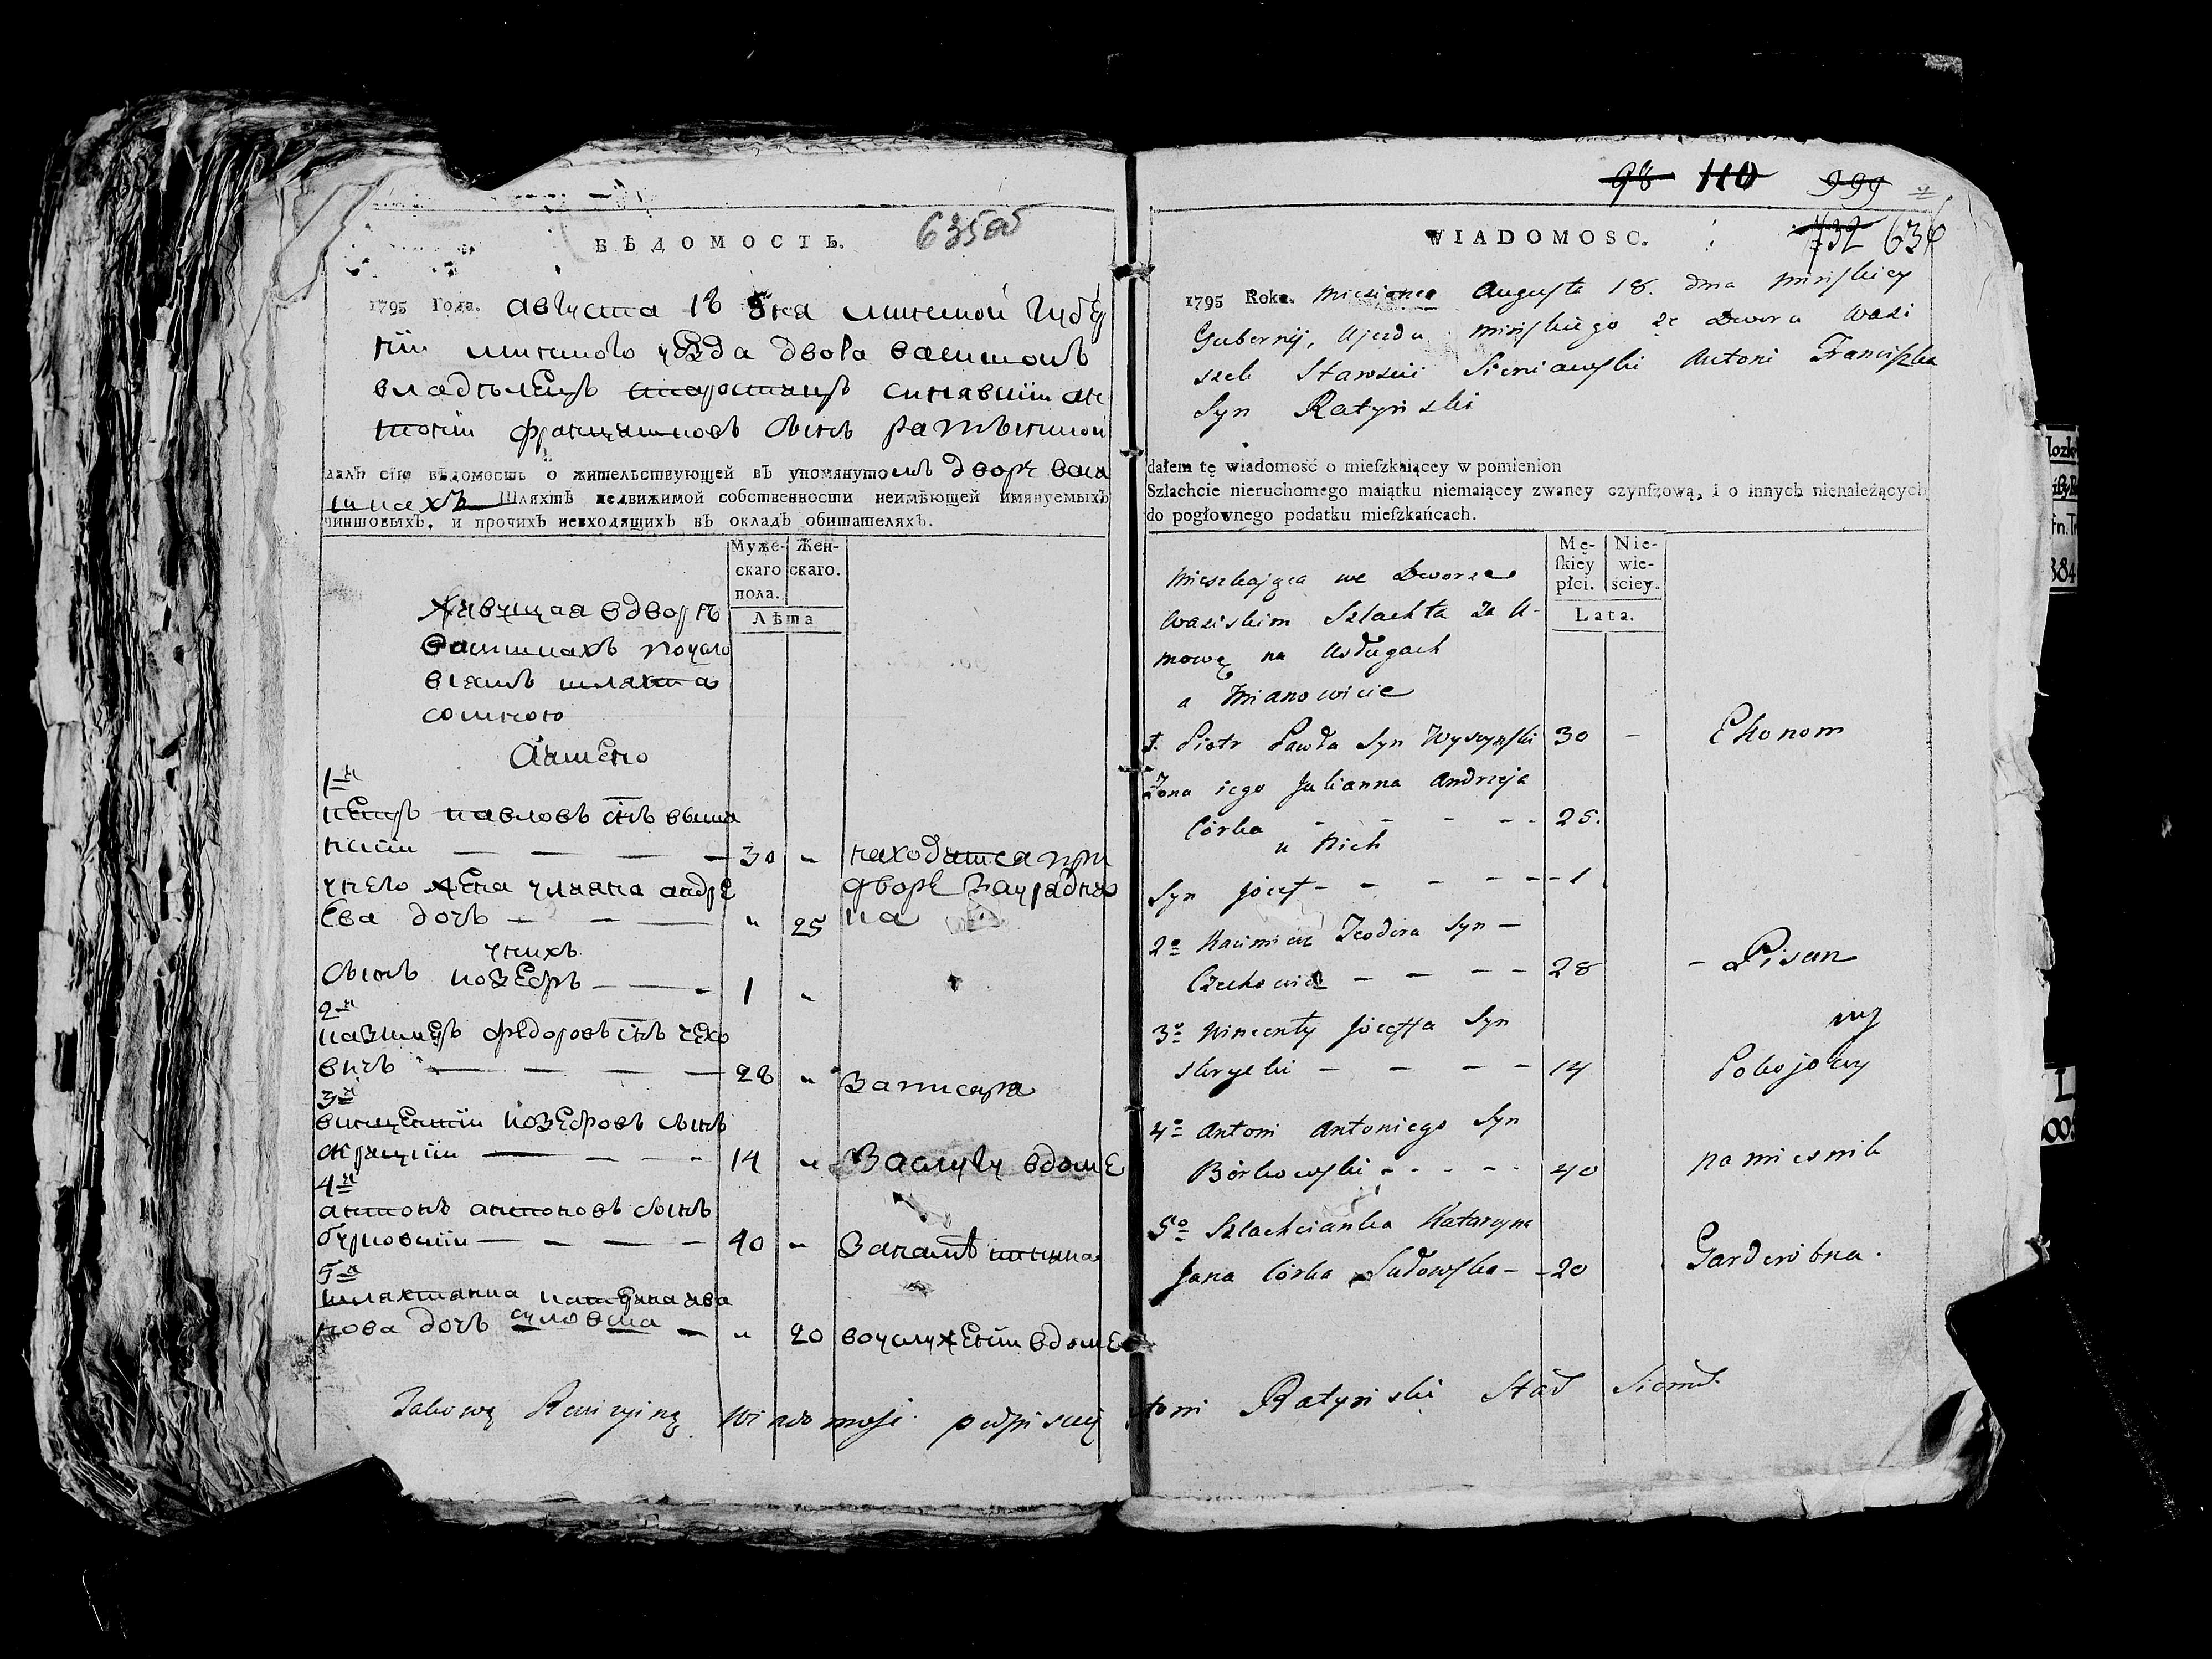 635об
ВѢДОМОСТЬ.
1795 Года. августа 18 дня минской губер
нїи минского уезда двора
владѣлецъ синявский ан
тонїи францишковъ сынъ ратынской
далъ сїю вѣдомость о жительствующей въ упомянутомъ дворе васи
шкахъ Шляхтѣ недвижимой собственности неимѣющей имянуемыхъ
чиншовыхъ, и прочихъ невходящихъ въ окладъ обитателяхъ.
Муже-скаго пола. Жен-скаго.
Лѣта
живущая вдворѣ
васишкахъ поусло
виямъ шляхта
сомною
Аимено
1й
петръ павловъ снъ выши
нский — — — — 30 „ находитса при
унего жена улияна андре дворе заурадни
ева дочь — — — „ 25 ка
унихъ
сынъ иозефъ — — — 1 „
2й
казимеръ федоровъ снъ чехо
вичъ — — — — 28 „ записара
3й
винцентїи иозефовъ сынъ
скрицкїи — — — — 14 „ Заслугу вдоме
4й
антонъ антоновъ сынъ
бурковский — — — — 40 „ Занамѣстника
5й
шляхтянка катерина ива
нова дочь — „ 20 воуслуженїи вдоме
Takową Rewizyiną Wiadomość podpisuię
98 110 999
732 636
WIADOMOSC.
1795 Roku. Miesionca Augusta 18. dnia Minskiey
Gubernij, Ujezdu Minskiego ze Dworu Wasi
szek Starosta Sieniawski Antoni Franciszka
Syn Ratynski
dałem tę wiadomość o mieſzkaiącey w pomienion
Szlachcie nieruchomego maiątku niemaiącey zwaney czynſzową, i o innych nienależących
do pogłownego podatku mieſzkańcach.
Mę-ſkiey płci. Nie-wie-ściey.
Lata.
Mieszkająca we Dworze
Waziskim Szlachta za U-
mową na Usługach
a Mianowicie
1. Piotr Pawła Syn Wyszynski 30 - Ekonom
Zona iego Julianna Andrzeja
Córka - - - - 25.
u Nich
Syn Józef - - - - - 1
2o Kazimierz Teodora Syn —
Czechowicz — — — — 28 - Pisarz
3o Wincenty Józeffa Syn
Skrycki — — — — 14 Pokojowy
4o Antoni Antoniego Syn
Bórkowski - - - - 40 namiesnik
5o Szlachcianka Katarzyna
Jana Córka Sudowska — 20 Garderóbna.
toni Ratynski Sta